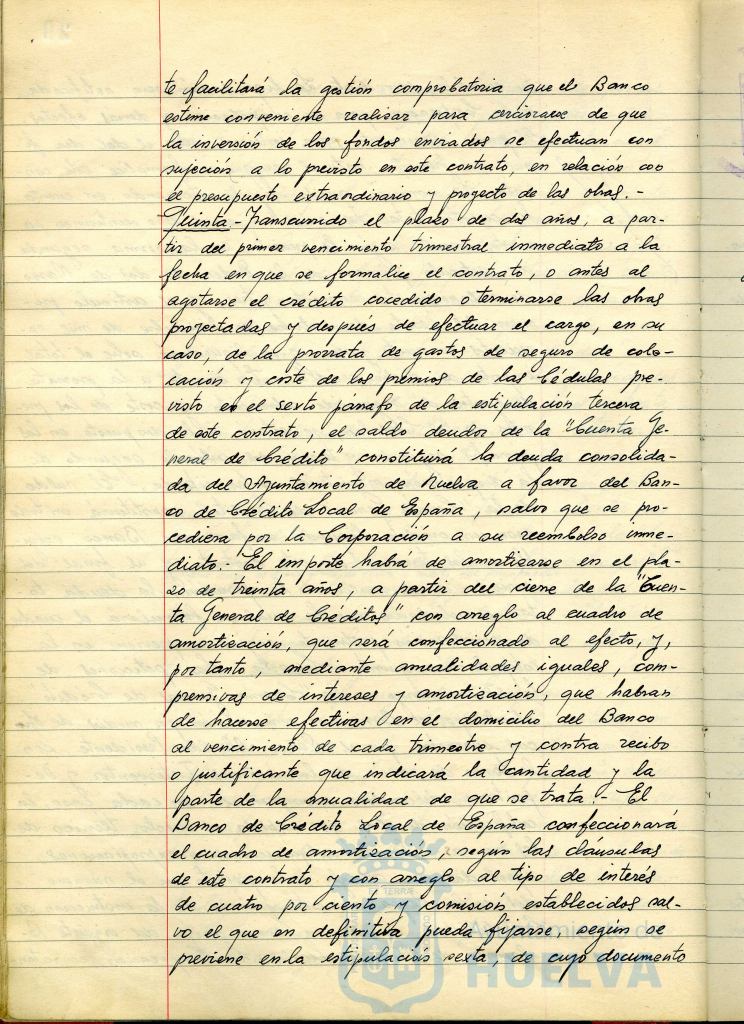 te facilitará la gestión comprobatoria que el Banco
estime conveniente realisar para cerciorarse de que
la inversión de los fondos enviados se efectuan con
sujeción a lo previsto en este contrato, en relación con
el presupuesto extraordinario y proyecto de las obras.-
Quinta-Transcurrido el plazo de dos años, a par-
tir del primer vencimiento trimestral inmediato a la
fecha en que se formalice el contrato, o antes al
agotarse el crédito cocedido o terminarse las obras
proyectadas y después de efectuar el cargo, en su
caso, de la prorrata de gastos de seguro de colo-
cación y coste de los premios de las Cédulas pre-
visto en el sexto párrafo de la estipulación tercera
de este contrato, el saldo deudor de la "Cuenta Ge-
neral de Crédito" constituirá la deuda consolida-
da del Ayuntamiento de Huelva a favor del Ban-
co de Crédito Local de España, salvo que se pro-
cediera por la Corporación a su reembolso inme-
diato.- El importe habrá de amortizarse en el pla-
zo de treinta años, a partir del cierre de la "Cuen-
ta General de Créditos" con arreglo al cuadro de
amortización, que será confeccionado al efecto, y,
por tanto, mediante anualidades iguales, com-
prensivas de intereses y amortización, que habran
de hacerse efectivas en el domicilio del Banco
al vencimiento de cada trimestre y contra recibo
o justificante que indicará la cantidad y la
parte de la anualidad de que se trata.- El
Banco de Crédito Local de España confeccionará
el cuadro de amortización, según las cláusulas
de este contrato y con arreglo al tipo de interés
de cuatro por ciento y comisión establecidos sal-
vo el que en definitiva pueda fijarse, según se
previene en la estipulación sexta, de cuyo documento
HUELVA